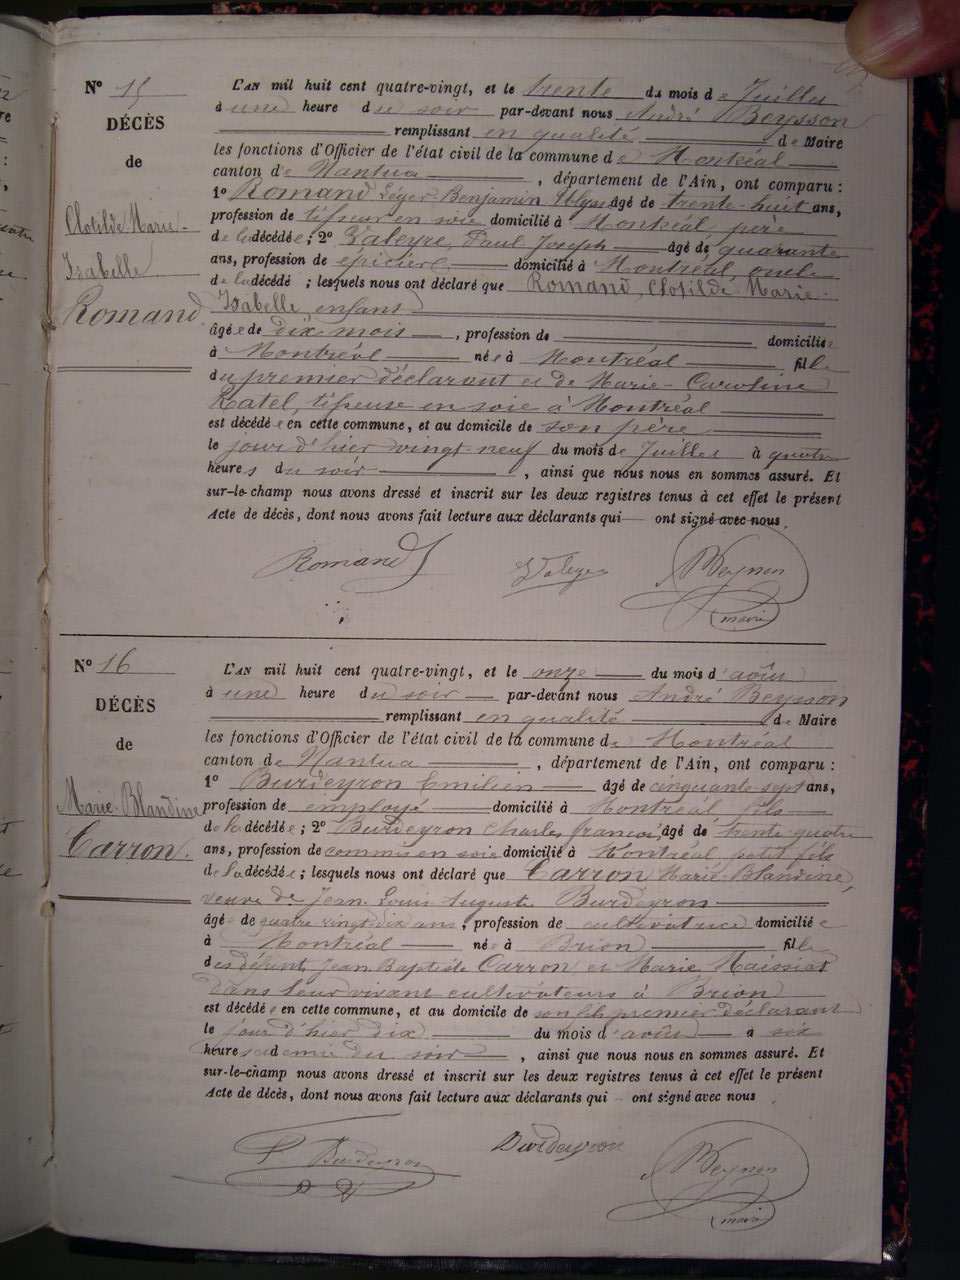 N° 15
DÉCÈS
de
Clotilde-Marie-
Isabelle
Romand
L'AN mil huit cent quatre-vingt, et le trente du mois de Juillet
à une heure du soir par-devant nous André Beysson
remplissant en qualité de Maire
les fonctions d'Officier de l'état civil de la commune de Montréal
canton de Nantua, département de l'Ain, ont comparu :
1° Romand Léger Benjamin Ulysse âgé de trente-huit ans,
profession de tisseur en soie domicilié à Montréal, père
de la décédée; 2° Valeyre, Paul Joseph âgé de quarante
ans, profession de epicier domicilié à Montréal, oncle
de la décédé ; lesquels nous ont déclaré que Romand, Clotilde-Marie-
Isabelle, enfant
âgée de dix mois, profession de domiciliée
à Montréal née à Montréal fille
du premier déclarant et de Marie-Caroline
Ratel, tisseuse en soie à Montréal
est décédée en cette commune, et au domicile de son père
le jour d'hier vingt-neuf du mois de Juillet à quatre
heures du soir, ainsi que nous nous en sommes assuré. Et
sur-le-champ nous avons dressé et inscrit sur les deux registres tenus à cet effet le présent
Acte de décès, dont nous avons fait lecture aux déclarants qui ont signé avec nous.
Romand Valeyre
maire
N° 16
DÉCÈS
de
Marie-Blandine
Carron.
L'AN mil huit cent quatre-vingt, et le onze du mois d'août
à une heure du soir par-devant nous André Beysson
remplissant en qualité de Maire
les fonctions d'Officier de l'état civil de la commune de Montréal
canton de Nantua, département de l'Ain, ont comparu :
1° Burdeyron Emilien âgé de cinquante-sept ans,
profession de employé domicilié à Montréal fils
de la décédée; 2° Burdeyron Charles françois, âgé de trente-quatre
ans, profession de commis en soie domicilié à Montréal, petit fils
de la décédée; lesquels nous ont déclaré que Carron Marie-Blandine,
veuve de Jean Louis Auguste Burdeyron
âgée de quatre vingt dix ans, profession de cultivatrice domiciliée
à Montréal née à Brion fille
des défunts Jean Baptiste Carron et Marie Maissiat
dans leur vivant cultivateurs à Brion
est décédée en cette commune, et au domicile de son fils premier déclarant
le jour d'hier dix du mois d'août à six
heures et demie du soir, ainsi que nous nous en sommes assuré. Et
sur-le-champ nous avons dressé et inscrit sur les deux registres tenus à cet effet le présent
Acte de décès, dont nous avons fait lecture aux déclarants qui ont signé avec nous
Burdeyron Burdeyron
maire